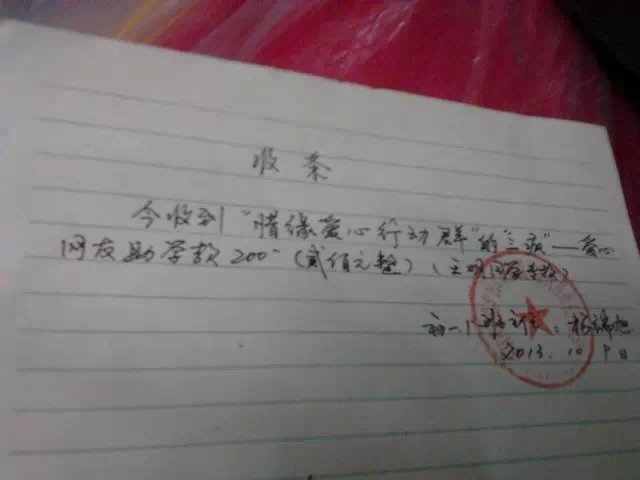 收条
今收到“情缘爱心行动群”的“三疯”——爱心
网友助学款200-(贰佰元整)(王明同学
初一1班主任:杨
2013.10.9日